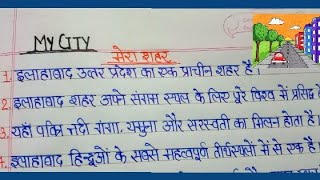 MY CITY
मेरा शहर
1. इलाहाबाद उत्तर प्रदेश का एक प्राचीन शहर है।
2. इलाहाबाद शहर अपने संगम स्थल के लिए पूरे विश्व में प्रसिद्ध
3. यहाँ पवित्र नदी गंगा, यमुना और सरस्वती का मिलन होता है।
4. इलाहाबाद हिन्दुओं के सबसे महत्वपूर्ण तीर्थस्थलों में से एक है।